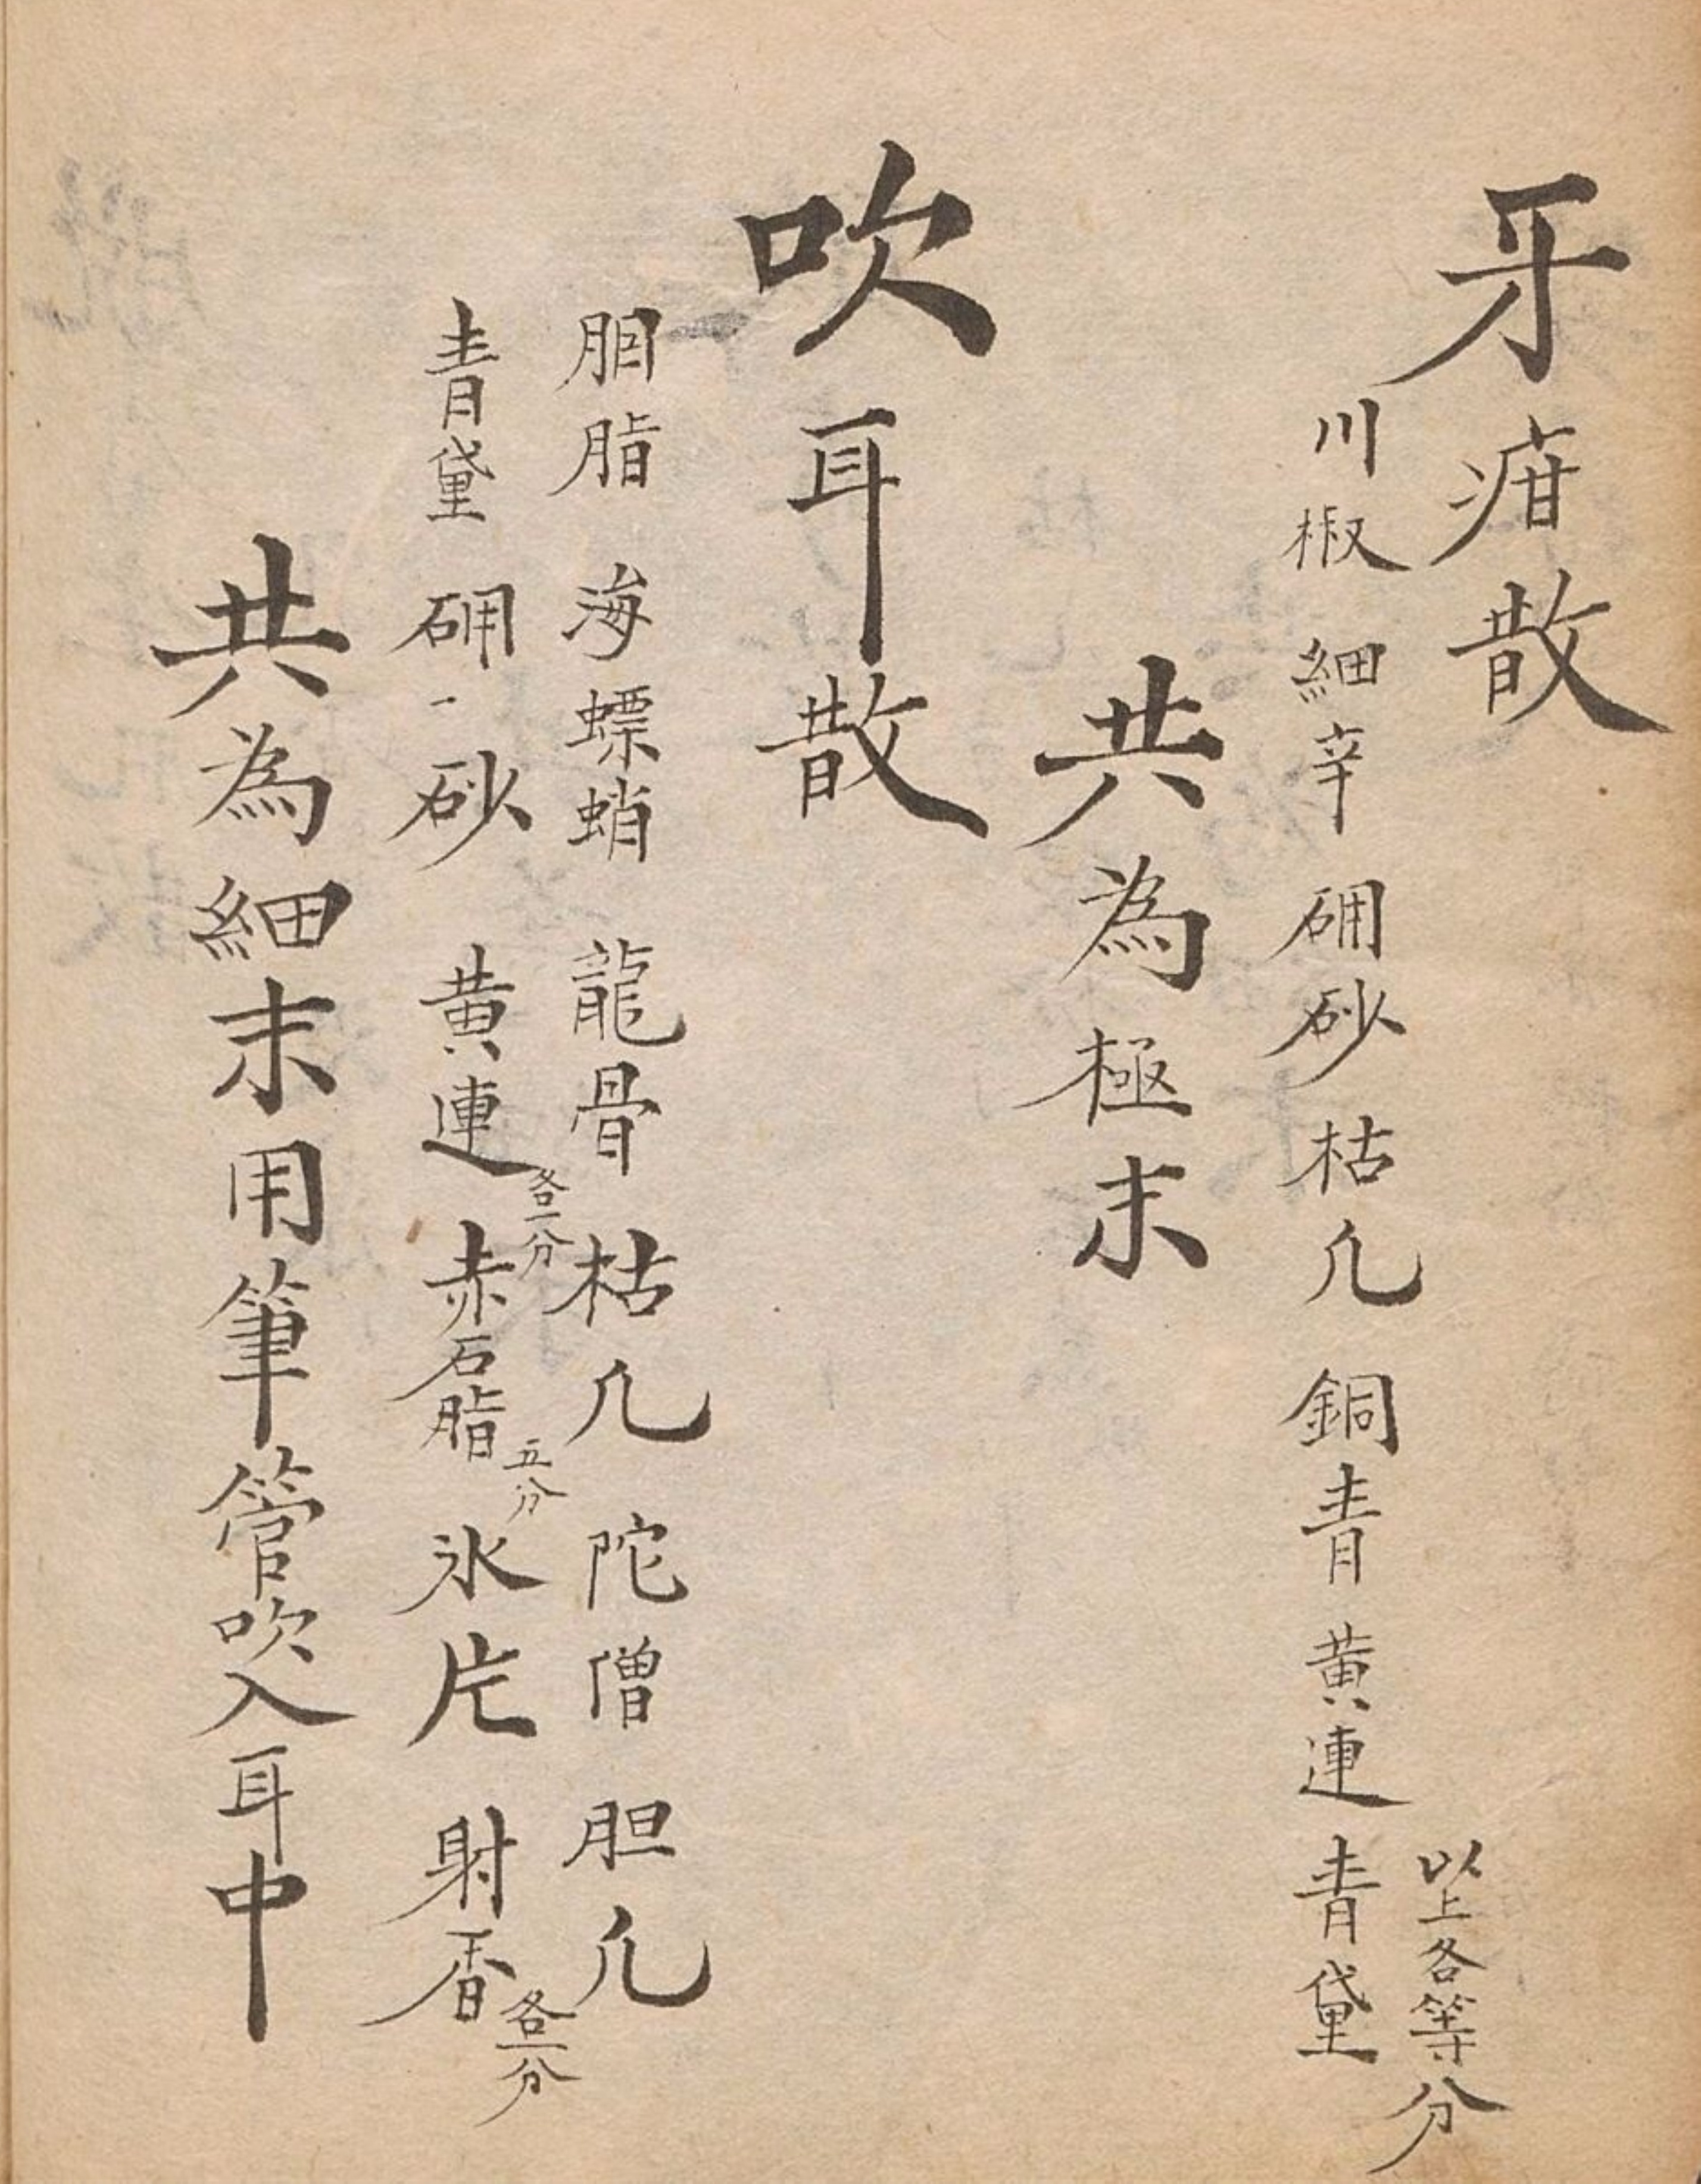 牙疳散
川椒 細辛 硼砂 枯凢 銅青 黄連 青黛 以上各等分
共為極末
吹耳散
胭脂 海螵蛸 龍骨 枯凢 陀僧 胆凢
青黛 硼砂 黄連 各一分 赤石脂 五分 氷片 射香 各一分
共為細末用筆管吹入耳中